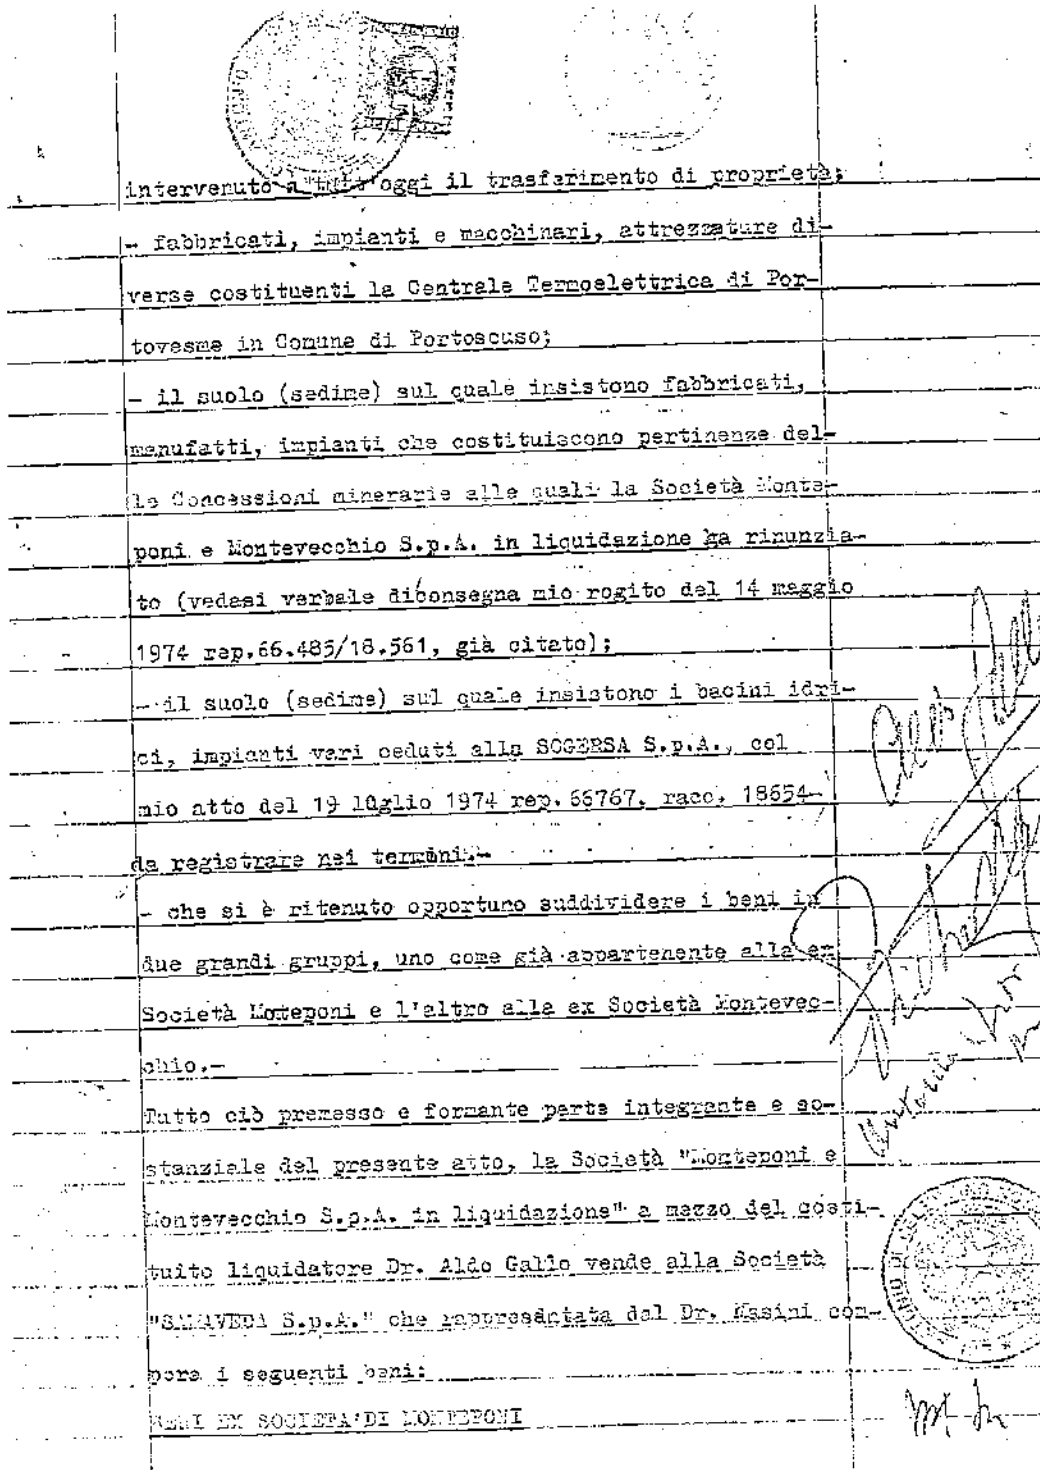 intervenuto a tutt'oggi il trasferimento di proprietà;
- fabbricati, impianti e macchinari, attrezzature di-
verse costituenti la Centrale Termoelettrica di Por-
tovesme in Comune di Portoscuso;
- il suolo (sedime) sul quale insistono fabbricati,
manufatti, impianti che costituiscono pertinenze del-
le Concessioni minerarie alle quali la Società Monte-
poni e Montevecchio S.p.A. in liquidazione ha rinunzia-
to (vedasi verbale diconsegna mio rogito del 14 maggio
1974 rep.66.485/18.561, già citato);
- il suolo (sedime) sul quale insistono i bacini idri-
ci, impianti vari ceduti alla SOGERSA S.p.A., col
mio atto del 19 luglio 1974 rep. 66767, racc. 18654
da registrare nei termini.-
- che si è ritenuto opportuno suddividere i beni in
due grandi gruppi, uno come già appartenente alla ex
Società Moteponi e l'altro alla ex Società Montevec-
chio.-
Tutto ciò premesso e formante parte integrante e so-
stanziale del presente atto, la Società "Monteponi e
Montevecchio S.p.A. in liquidazione" a mezzo del costi-
tuito liquidatore Dr. Aldo Gallo vende alla Società
"SAMAVEDA S.p.A." che rappresentata dal Dr. Masini com-
pera i seguenti beni:
BENI EX SOCIETA' DI MONTEPONI